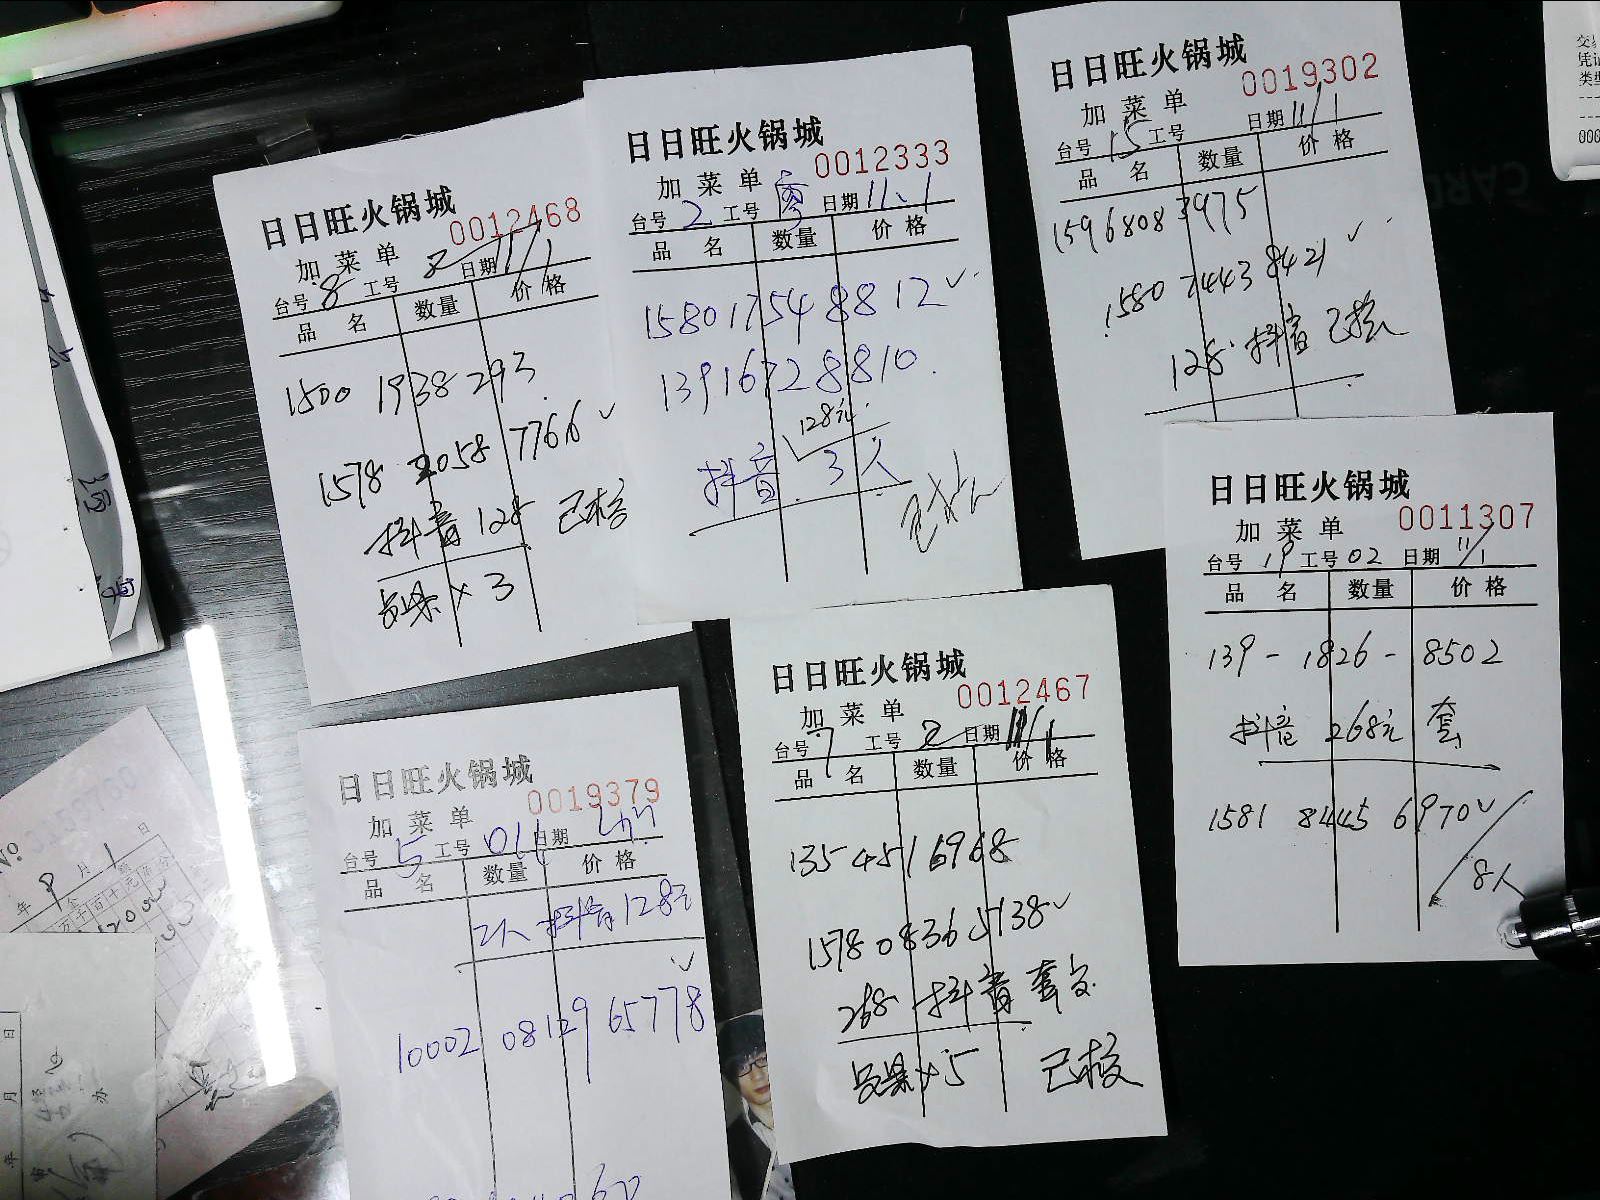 日日旺火锅城
0012468
加菜单
台号 8 工号 2 日期 11/1
品名 数量 价格
1500 1938 293
1578 2058 7766 ✓
抖音 128 已核
×3
日日旺火锅城
0012333
加菜单
台号 2 工号 廖 日期 11.1
品名 数量 价格
15801754 8812 ✓
13916728810
128元
抖音 3人
日日旺火锅城
0019302
加菜单
台号 15 工号 日期 11/1
品名 数量 价格
1596808 3975
1580 7443 8421 ✓
128 抖音 已核
日日旺火锅城
0011307
加菜单
台号 19 工号 02 日期 11/1
品名 数量 价格
139-1826-8502
抖音 268元 套
1581 8445 6970 ✓
8人
日日旺火锅城
0019379
加菜单
台号 5 工号 日期
品名 数量 价格
2人 抖音128元
✓
10002 08129 65778
日日旺火锅城
0012467
加菜单
台号 7 工号 2 日期 11/1
品名 数量 价格
135 4516968
1578 0836 5138 ✓
268 抖音 套
×5 已核